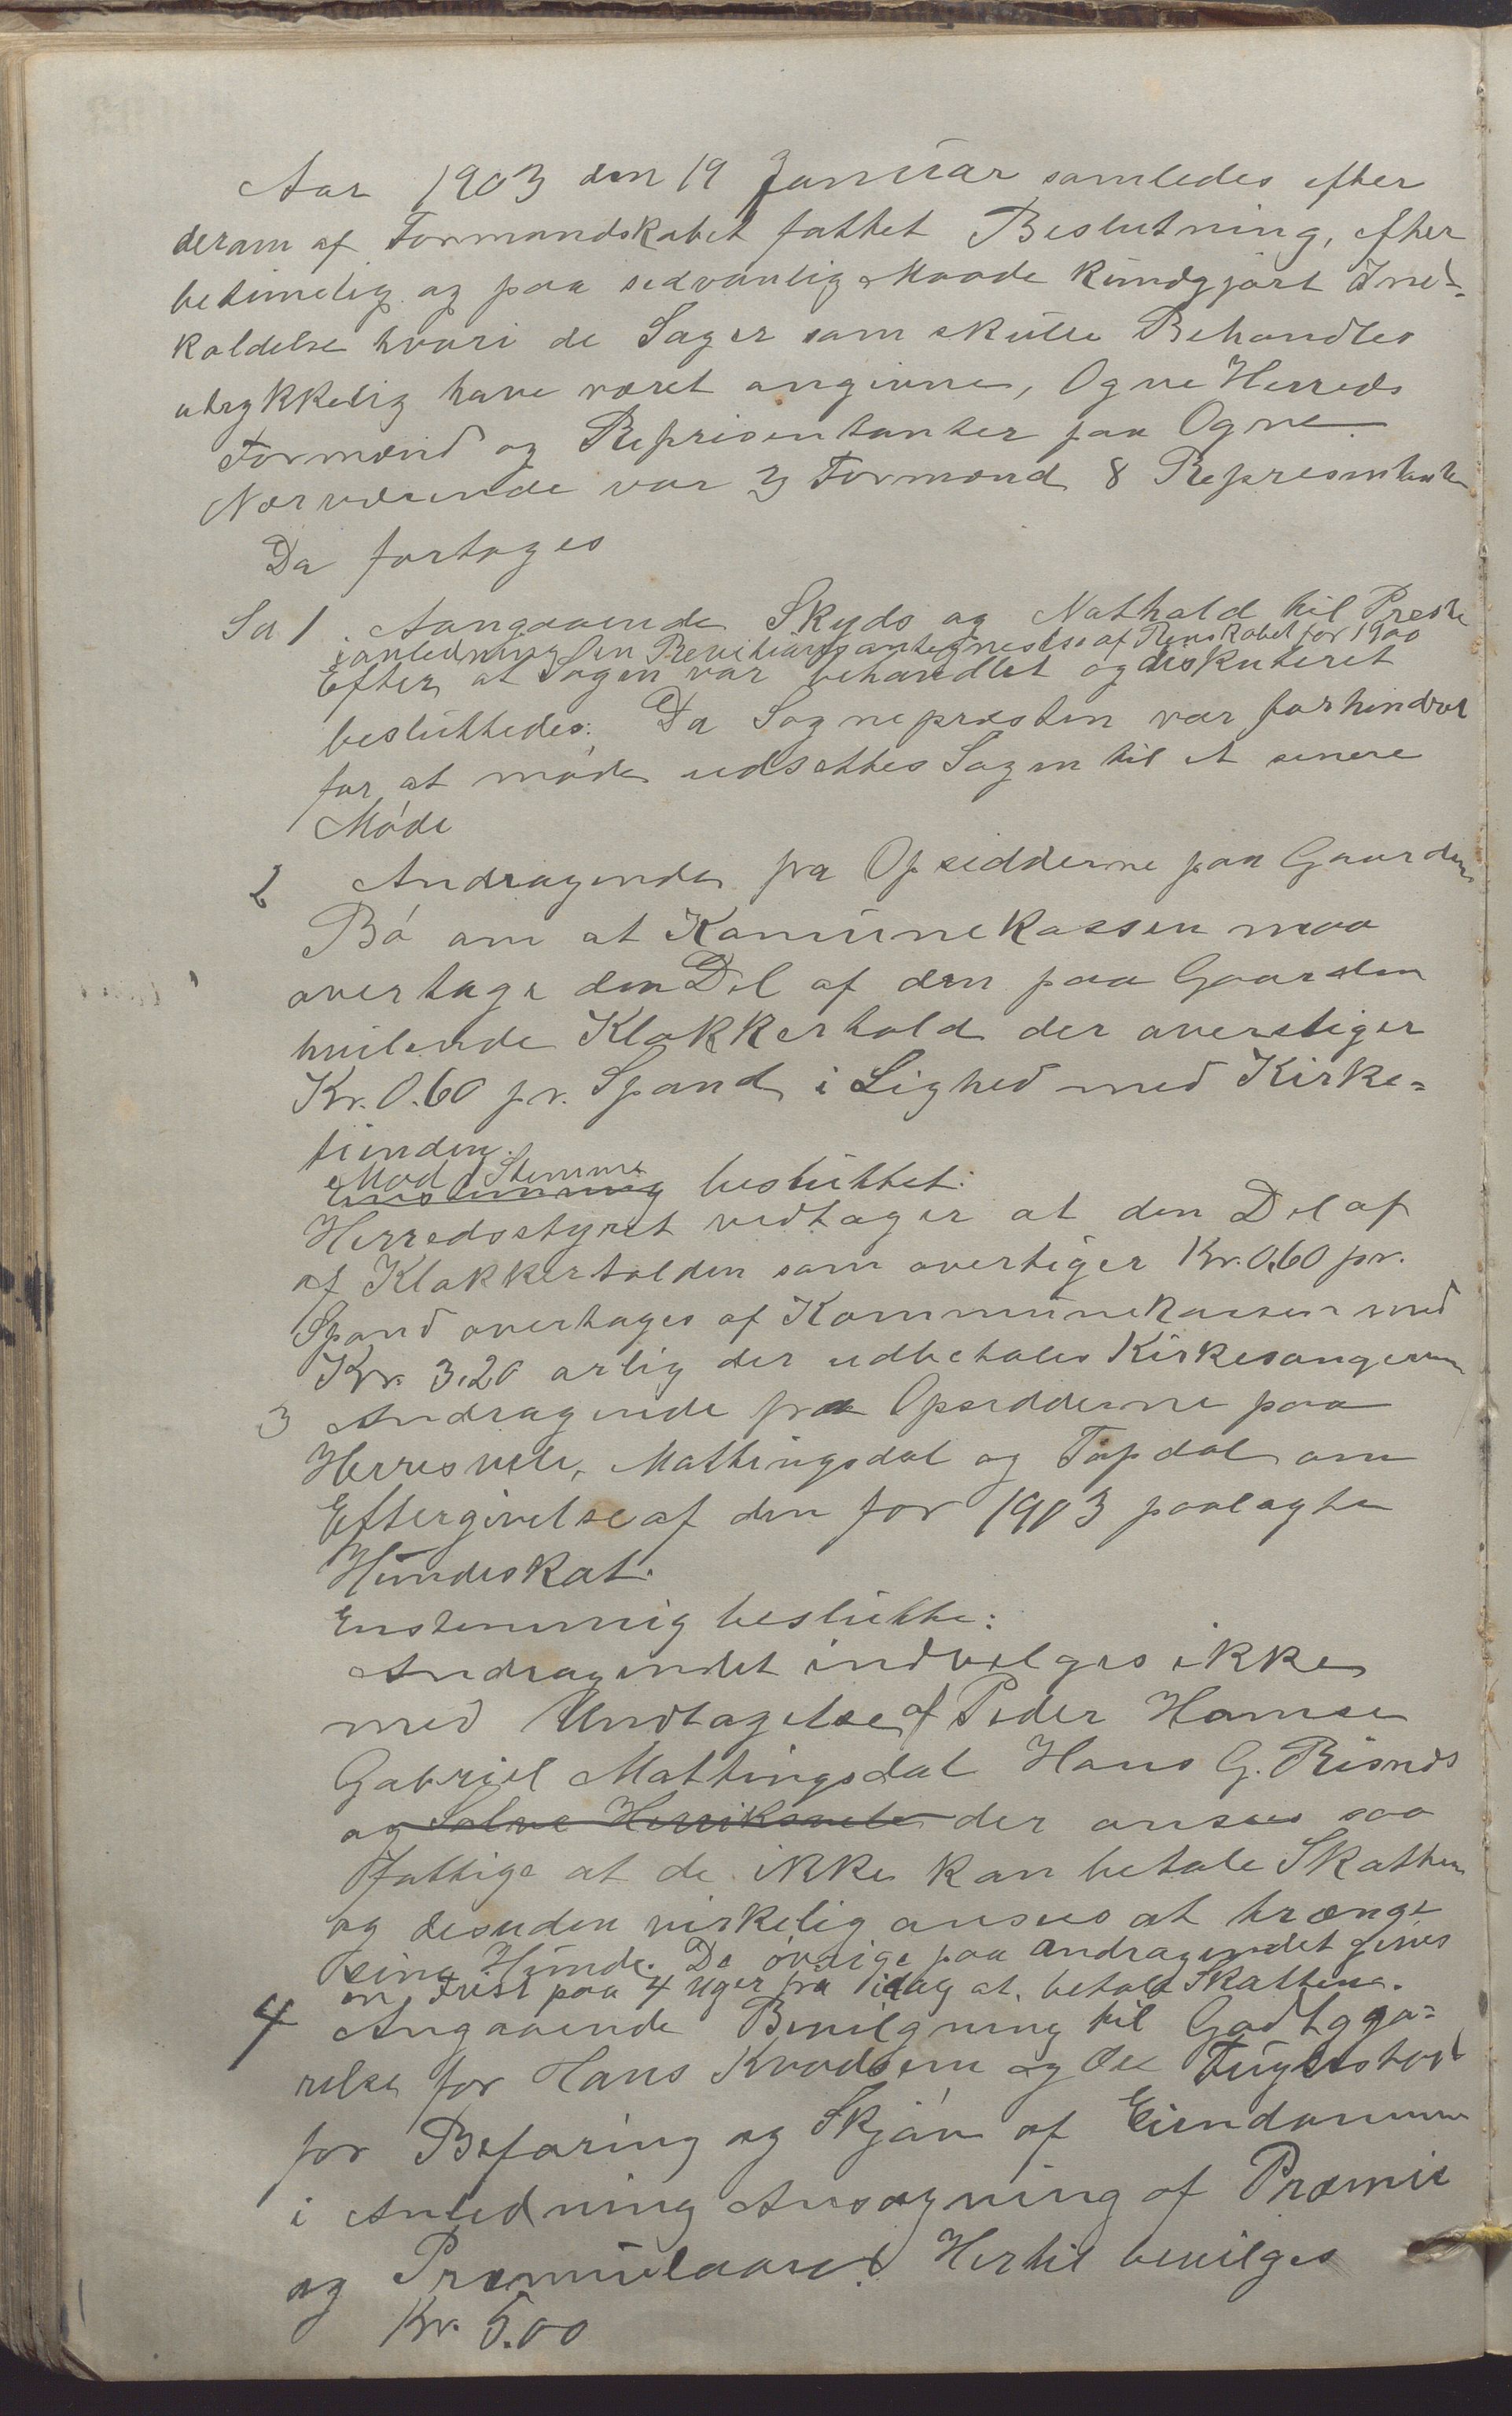 Aar 1903 den 19 Januar samledes efter
derom af Formandskabet fattet Beslutning, efter
betimelig og paa sedvanlig Maade kundgjort Ind-
kaldelse hvori de Sager som skulle Behandles
udrykkelig have været angivne, Ogne Herreds
Formænd og Represententer paa Ogne
Nærværende var 3 Formænd 8 Representanter
Da fortoges
Sa 1. Aangaaende Skyds og Nathold til Preste
i anledning en Revisionsantegnelse af Renskabet for 1900
Efter at Sagen var behandlet og diskuteret
besluttedes: Da Sognepresten var forhindret
for at møde udsettes Sagen til et senere
Møde
2 Andragende fra Opsidderne paa Gaarden
Bø om at Kommunekassen maa
overtage den Del af den paa Gaarden
hvilende Klokkertold der overstiger
Kr. 0.60 pr. Spand i Lighed med Kirke=
tienden.
Mod 1 Stemme
Enstemmig besluttet:
Herredsstyret vedtager at den Del af
af Klokkertolden som overtiger Kr. 0,60 pr.
Spand overtages af Kommunekassen med
Kr. 3.20 arlig der udbetales Kirkesangeren
3 Andragende fra Opsidderne paa
Herresvele, Mattingsdal og Tapdal om
Eftergivelse af den for 1903 paalagte
Hundeskat.
Enstemmig beslutte:
Andragendet indvelges ikke
med Undtagelse af Peder Hamre
Gabriel Mattingsdal Hans G. Bisnes
og Salve Herriksvele der ansees saa
fattige at de ikke kan betale Skatten
og desuden virkelig ansees at trænge
sine Hunde. De øvrige paa andragendet gives
en Frist paa 4 uger fra idag at betale Skatten.
4 Angaaende Bevilgning til Godtgjø=
relse for Hans Kvadsem og Ole Fuglestad
for Befaring og Skjøn af Eiendommene
i Anledning Ansøgning af Præmie
og Præmielaand. Hertil bevilges
Kr. 5.00